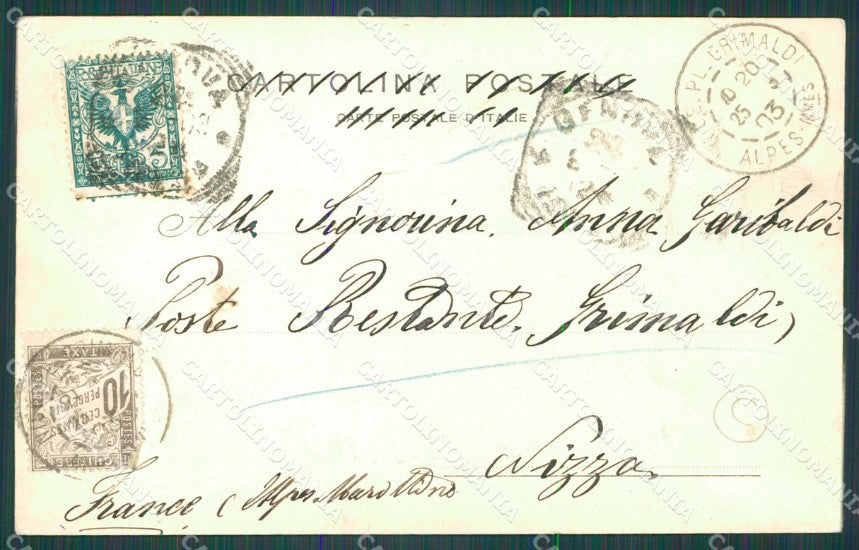 CARTOLINA POSTALE
CARTE POSTALE D'ITALIE
GENOVA
PL. GRIMALDI
20
25 03
ALPES-MMES
Alla Signorina Anna Garibaldi
Poste Restante. Grimaldi
Nizza
France (Alpes Marittime
TAXE
10
CENTIMES
PERCEVOIR
POSTES
CARTOLINOMANIA